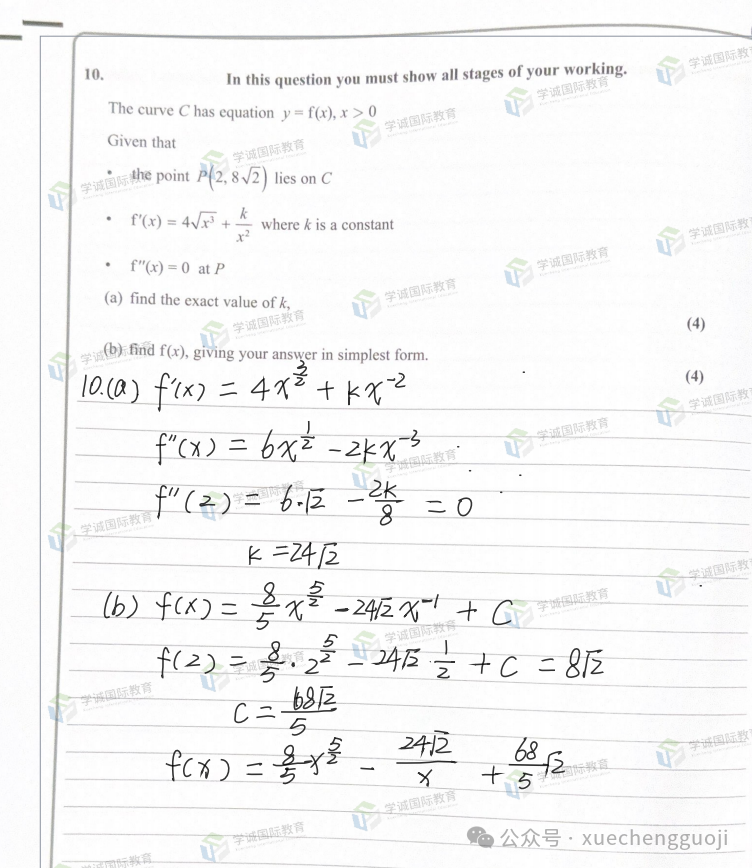 10.
In this question you must show all stages of your working.
The curve C has equation y = f(x), x > 0
Given that
• the point P(2, 8√2) lies on C
• f′(x) = 4√x³ + k/x² where k is a constant
• f″(x) = 0 at P
(a) find the exact value of k,
(4)
(b) find f(x), giving your answer in simplest form.
(4)
10.(a) f′(x) = 4x^(3/2) + kx^(-2)
f″(x) = 6x^(1/2) - 2kx^(-3)
f″(2) = 6·√2 - 2k/8 = 0
k = 24√2
(b) f(x) = 8/5 x^(5/2) - 24√2 x^(-1) + C
f(2) = 8/5 · 2^(5/2) - 24√2 · 1/2 + C = 8√2
C = 68√2/5
f(x) = 8/5 x^(5/2) - 24√2/x + 68/5 √2
学诚国际教育
公众号 · xuechengguoji